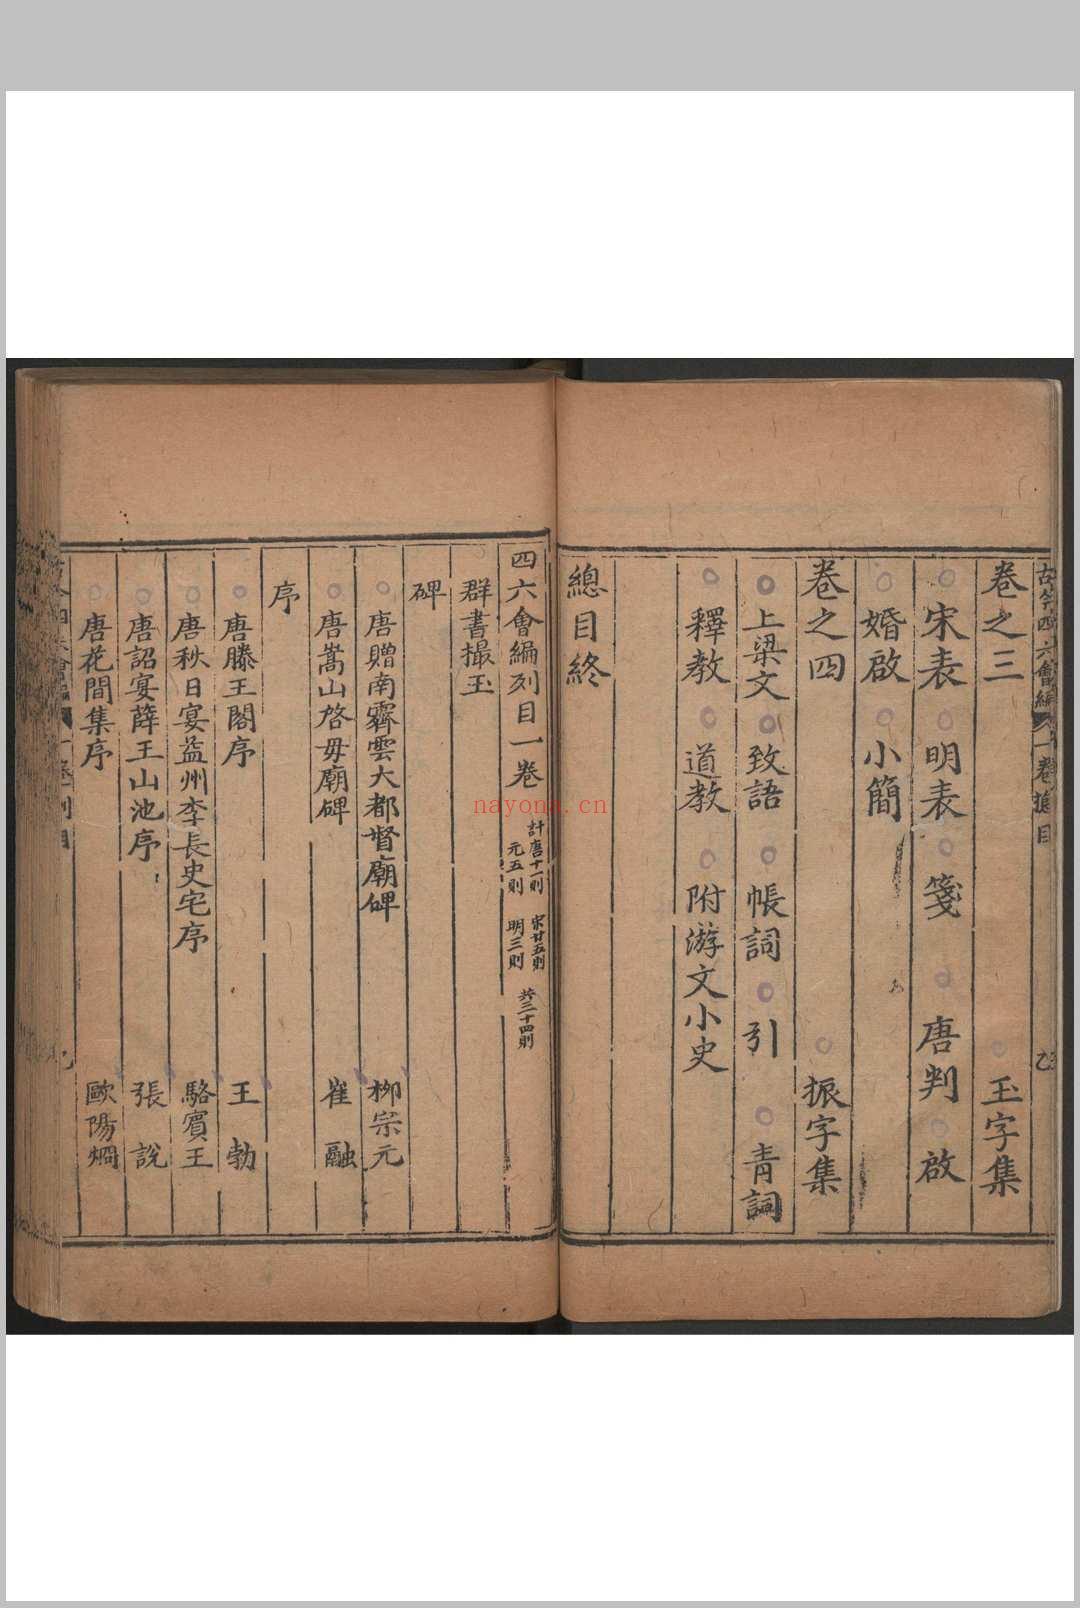 古今四六會編 一卷總目
卷之三 玉字集
宋表 明表 箋 唐判 啟
婚啟 小簡
卷之四 振字集
上梁文 致語 帳詞 引 青詞
釋教 道教 附游文小史
總目終
四六會編列目一卷 計唐十一則 宋廿五則 元五則 明三則 共三十四則
群書撮玉
碑
唐贈南霽雲大都督廟碑 柳宗元
唐嵩山啓毋廟碑 崔融
序
唐滕王閣序 王勃
唐秋日宴益州李長史宅序 駱賓王
唐詔宴薛王山池序 張說
唐花間集序 歐陽烱
nayona.cn